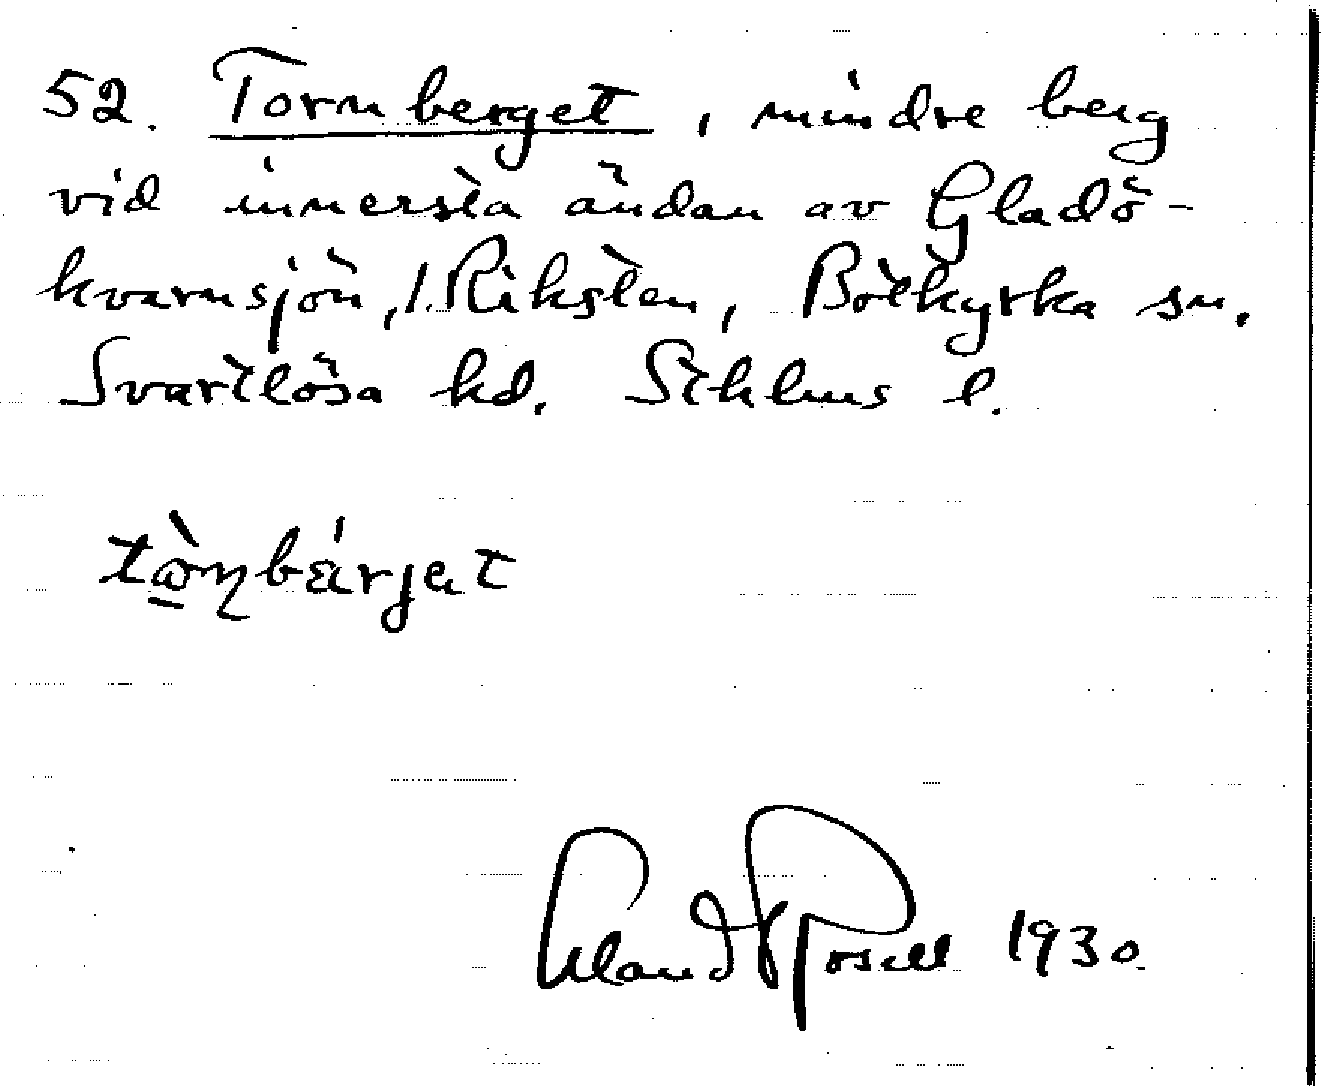 52. Tornberget, mindre berg
vid innersta ändan av Gladö-
kvarnsjön, 1 Riksten, Botkyrka sn.
Svartlösa hd. Sthlms l.
Erland Rosell 1930.